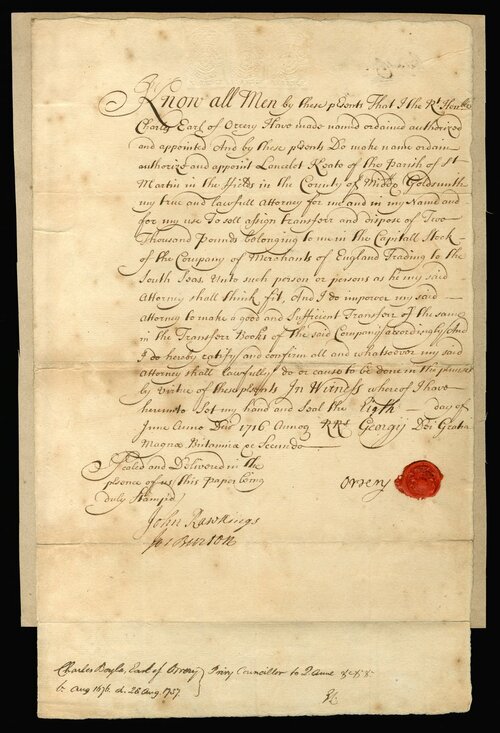 Know all Men by these p̃sents That I the Rt. Honble.
Charles Earl of Orrery Have made named ordained authorized
and appointed And by these p̃sents Do make name ordain
authorize and appoint Lancelot Keate of the Parish of St.
Martin in the ffields in the County of Middx Goldsmith
my true and lawfull Attorney for me and in my Name and
for my use To sell assign transferr and dispose of Two
Thousand pounds belonging to me in the Capitall Stock
of the Company of Merchants of England Trading to the
South Seas. Unto such person or persons as he my said
Attorney shall think fit, And I do impower my said
Attorney to make a good and Sufficient Transferr of the same
in the Transferr Books of the said Company accordingly And
I do hereby ratify and confirm all and whatsoever my said
Attorney shall lawfully do or cause to be done in the p̃misses
by virtue of these p̃sents In Witness whereof I have
hereunto Set my hand and Seal the Eigth day of
June Anno Dni 1716 Annoq RRs Georgij Dei Gratia
Magnæ Britanniæ &c Secundo
Sealed and Delivered in the
p̃sence of us (this Paper being
duly Stamp'd)
Orrery
John Rawkings
Jos Burton
Charles Boyle, Earl of Orrery } Privy Councillor to Q. Anne &c &c
b. Aug 1676. d. 28 Aug. 1737.